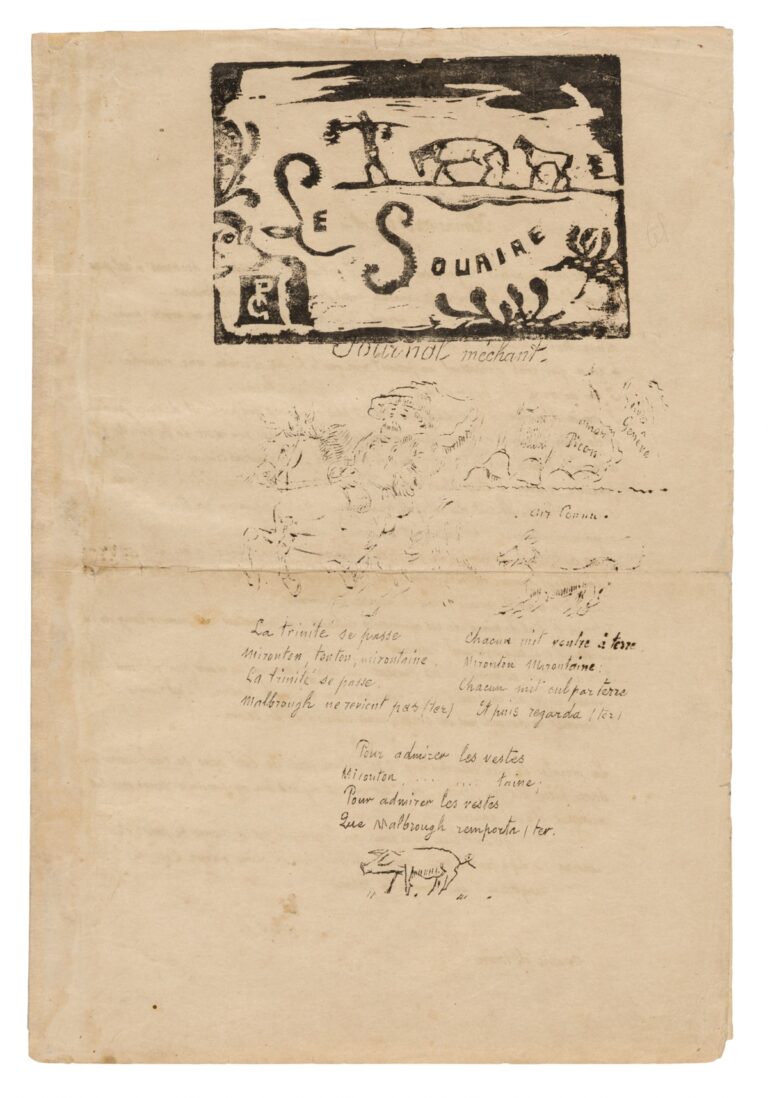 LE SOURIRE
PGO
Journal méchant.
Genève
Picon
air connu.
La trinité se passe
Mironton, tonton, mirontaine.
La trinité se passe.
Malbrough ne revient pas (ter)
Chacun mit ventre à terre.
Mironton Mirontaine;
Chacun mit cul par terre
Et puis regarda (ter)
Pour admirer les vestes
Mironton ... ... taine;
Pour admirer les vestes
Que Malbrough remporta (ter.